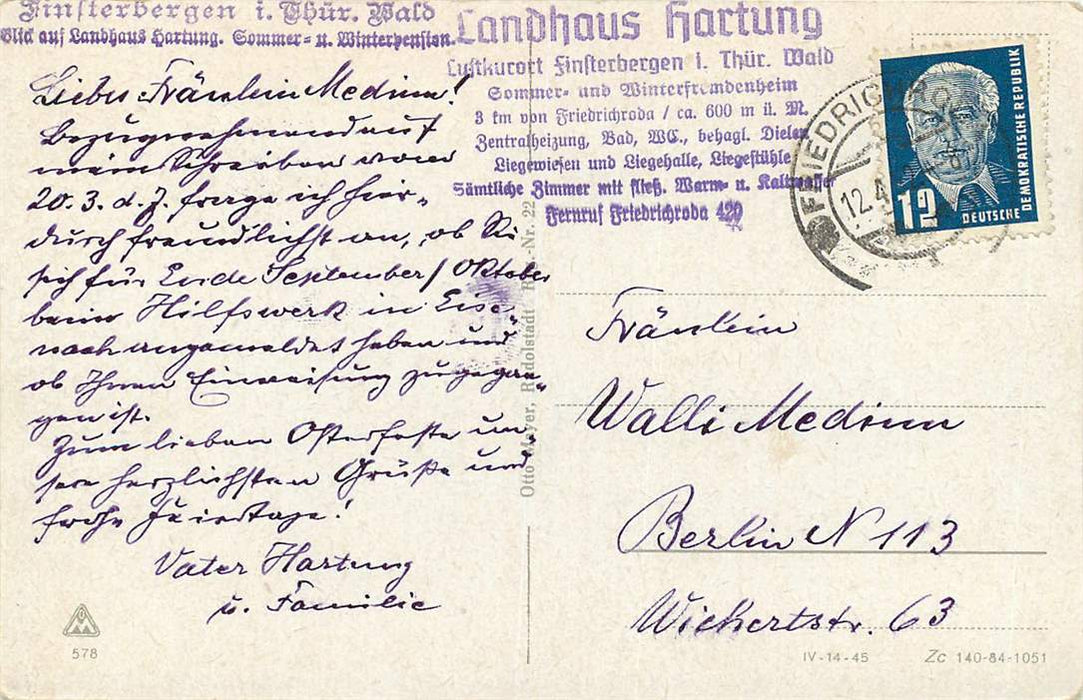 Finsterbergen i. Thür. Wald
Blick auf Landhaus Hartung. Sommer- u. Winterpension.
Landhaus Hartung
Luftkurort Finsterbergen i. Thür. Wald
Sommer- und Winterfremdenheim
3 km von Friedrichroda / ca. 600 m ü. M.
Zentralheizung, Bad, WC., behagl. Dielen
Liegewiesen und Liegehalle, Liegestühle
Sämtliche Zimmer mit fließ. Warm- u. Kaltwasser
Fernruf Friedrichroda 420
Liebes Fräulein Medium!
Bezugnehmend auf
mein Schreiben vom
20. 3. d. J. frage ich hier-
durch freundlichst an, ob Sie
sich für Ende September / Oktober
beim Hilfswerk in Eise-
nach angemeldet haben und
ob Ihnen Einweisung zugegan-
gen ist.
Zum lieben Osterfeste un-
sere herzlichsten Grüße und
frohe Feiertage!
Vater Hartung
u. Familie
578
Otto Mayer, Rudolstadt Nr. 22
FRIEDRICH
12.4
12
DEUTSCHE
DEMOKRATISCHE REPUBLIK
Fräulein
Walli Medium
Berlin N 113
Wichertstr. 63
IV-14-45
Zc 140-84-1051